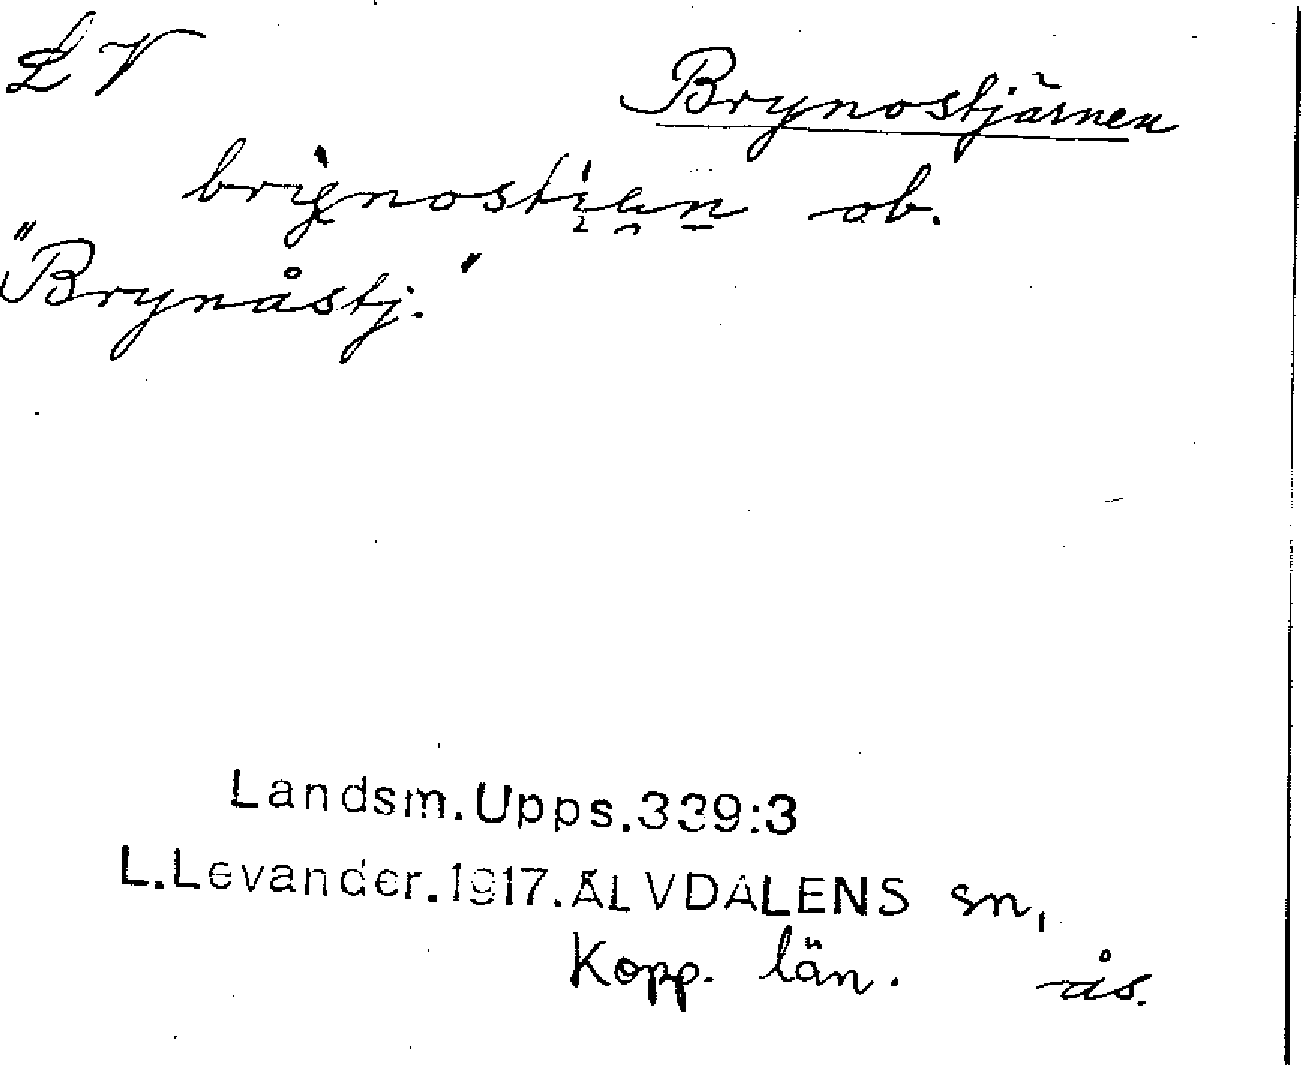 L V
Brynostjärnen
ob.
"Brynåstj."
Landsm.Upps.339:3
L.Levander.1917.ÄLVDALENS sn,
Kopp. län. ås.